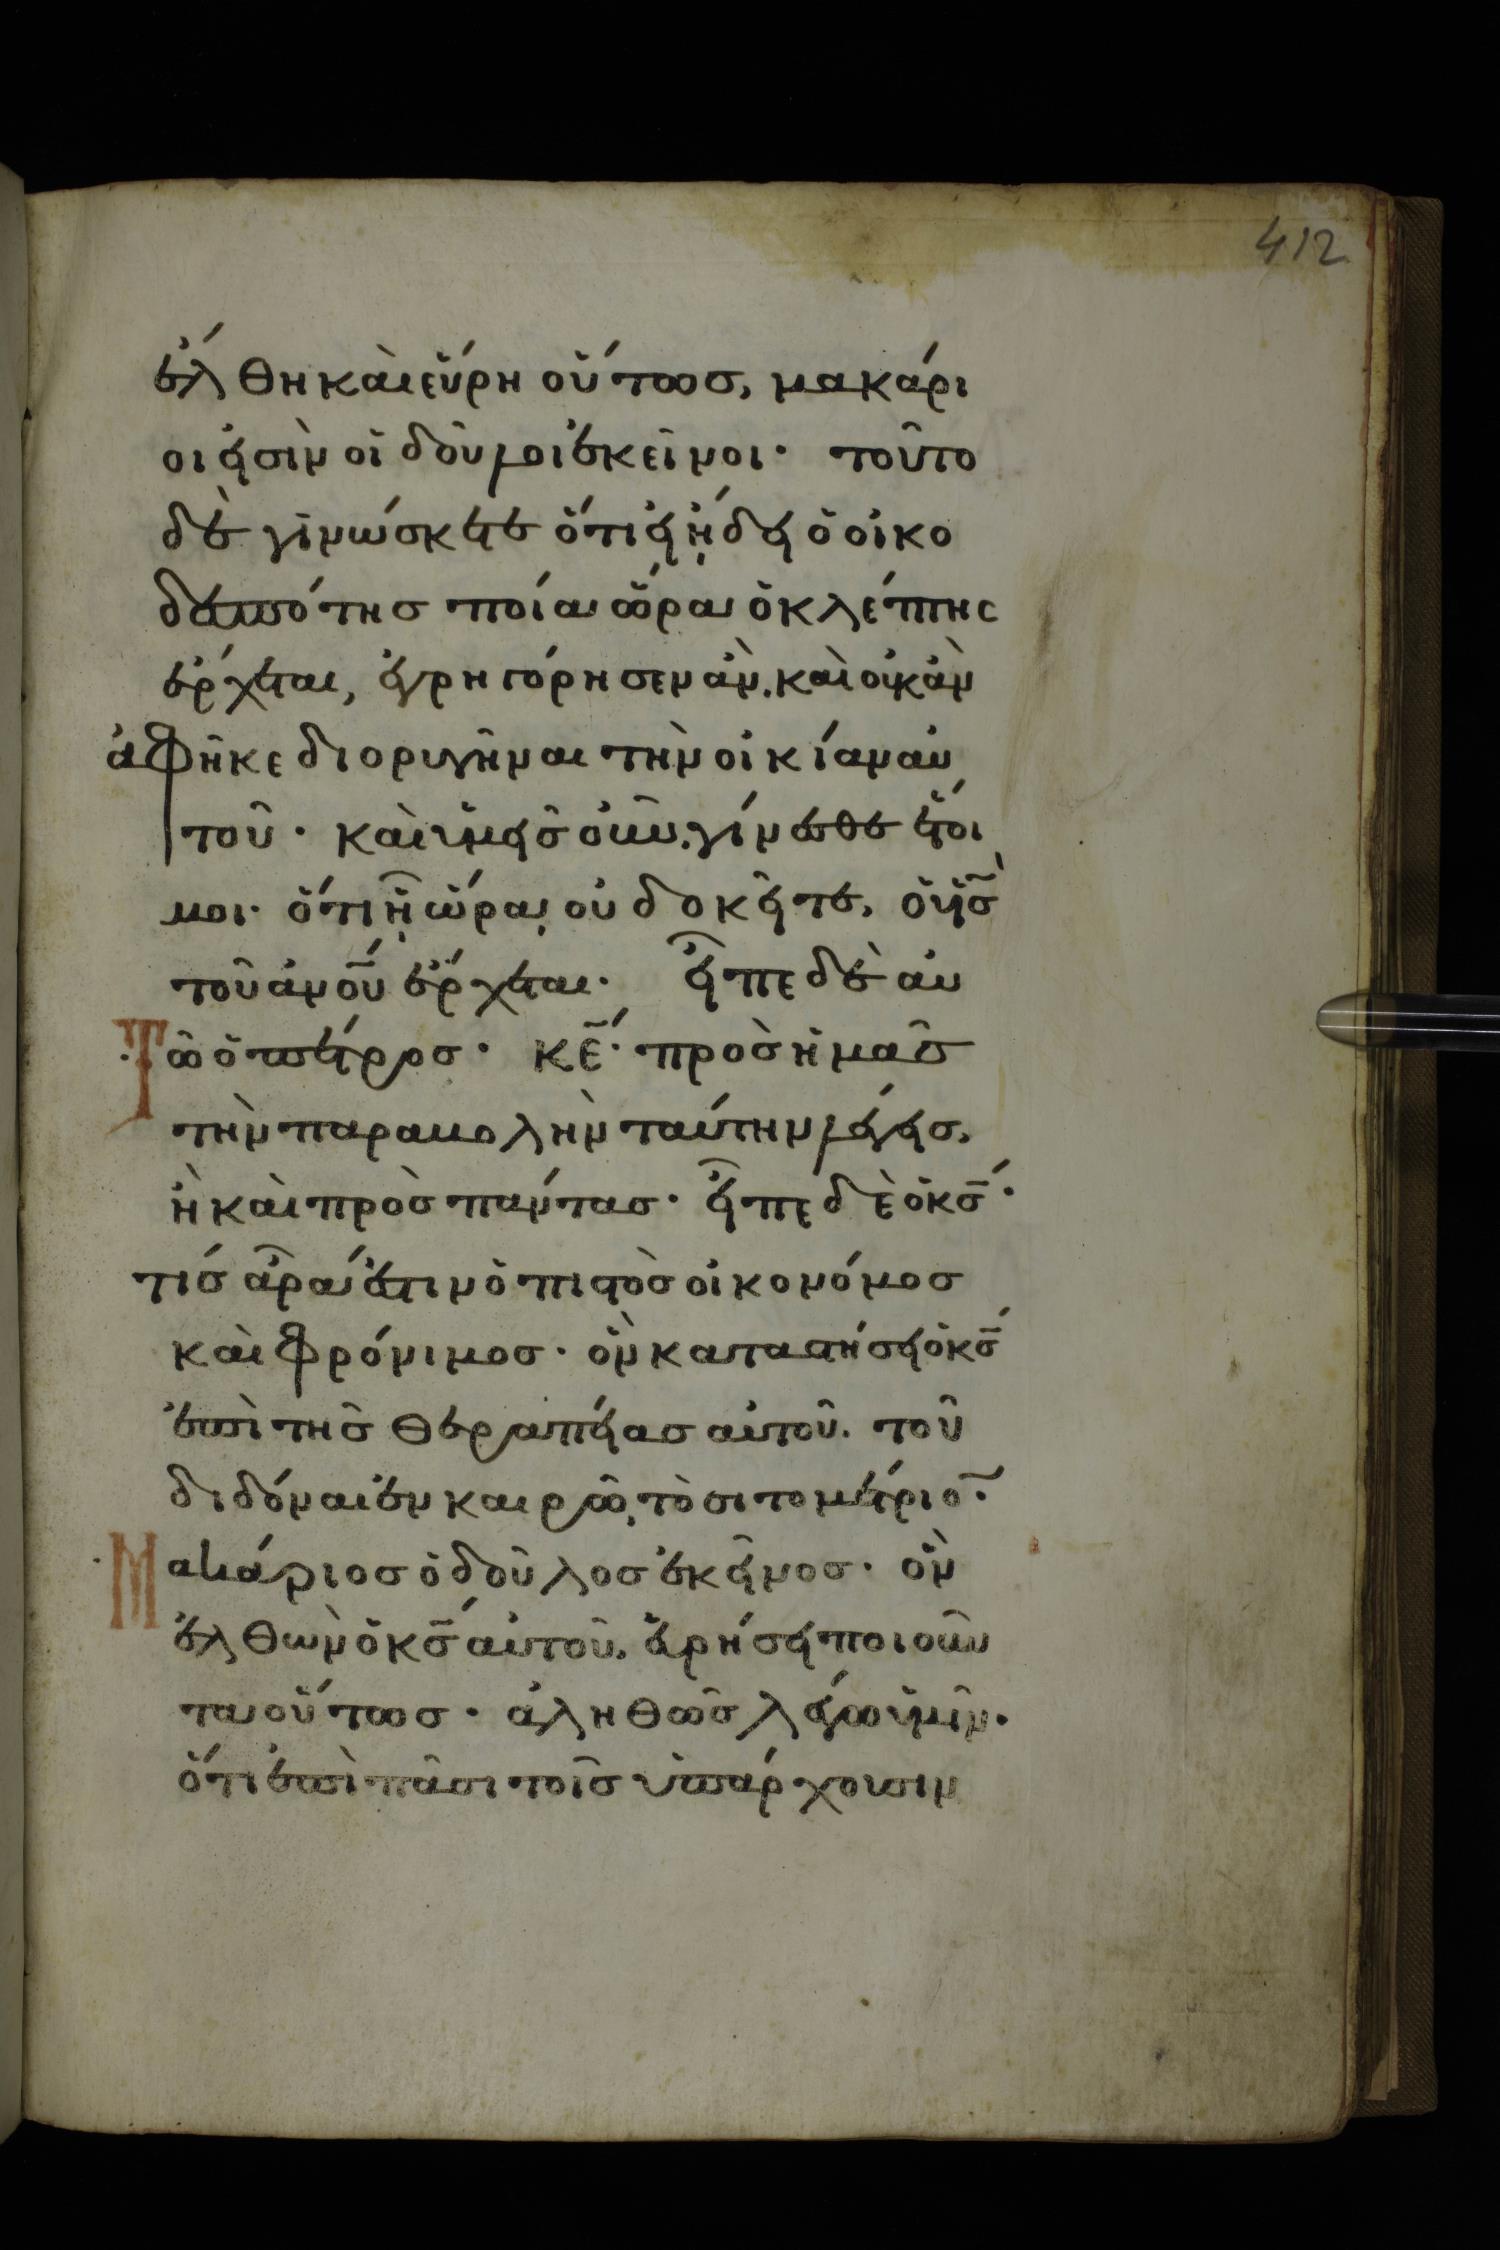 412
ἔλθη καὶ εὕρη οὕτωσ, μακάρι
οι εἰσὶν οἱ δοῦλοι ἐκεῖνοι· τοῦτο
δὲ γινώσκετε ὅτι εἰ ἤδει ὁ οἰκο
δεσπότησ ποία ὥρα ὁ κλέπτης
ἔρχεται, ἐγρηγόρησεν ἂν. καὶ οὐκ ἂν
ἀφῆκε διορυγῆναι τὴν οἰκίαν αὐ
τοῦ· καὶ ὑμεῖσ οὖν. γίνεσθε ἕτοι
μοι· ὅτι ᾗ ὥρα οὐ δοκεῖτε, ὁ υἱσ̄
τοῦ ἀνοῦ ἔρχεται· εἶπε δὲ αὐ
Τῶ ὁ πέτροσ· κε̄· πρὸσ ἡμᾶσ
τὴν παραβολὴν ταύτην λέγεισ,
ἢ καὶ πρὸσ πάντασ· εἶπε δὲ ὁ κσ̄·
τίσ ἆρα ἐστιν ὁ πιστὸσ οἰκονόμοσ
καὶ φρόνιμοσ· ὃν καταστήσει ὁ κσ̄
ἐπὶ τῆσ θεραπείασ αὐτοῦ. τοῦ
διδόναι ἐν καιρῶ, τὸ σιτομέτριο̄·
Μακάριοσ ὁ δοῦλοσ ἐκεῖνοσ· ὃν
ἐλθὼν ὁ κσ̄ αὐτοῦ, εὑρήσει ποιοῦν
τα οὕτωσ· ἀληθῶσ λέγω ὑμῖν·
ὅτι ἐπὶ πᾶσι τοῖσ ὑπάρχουσιν